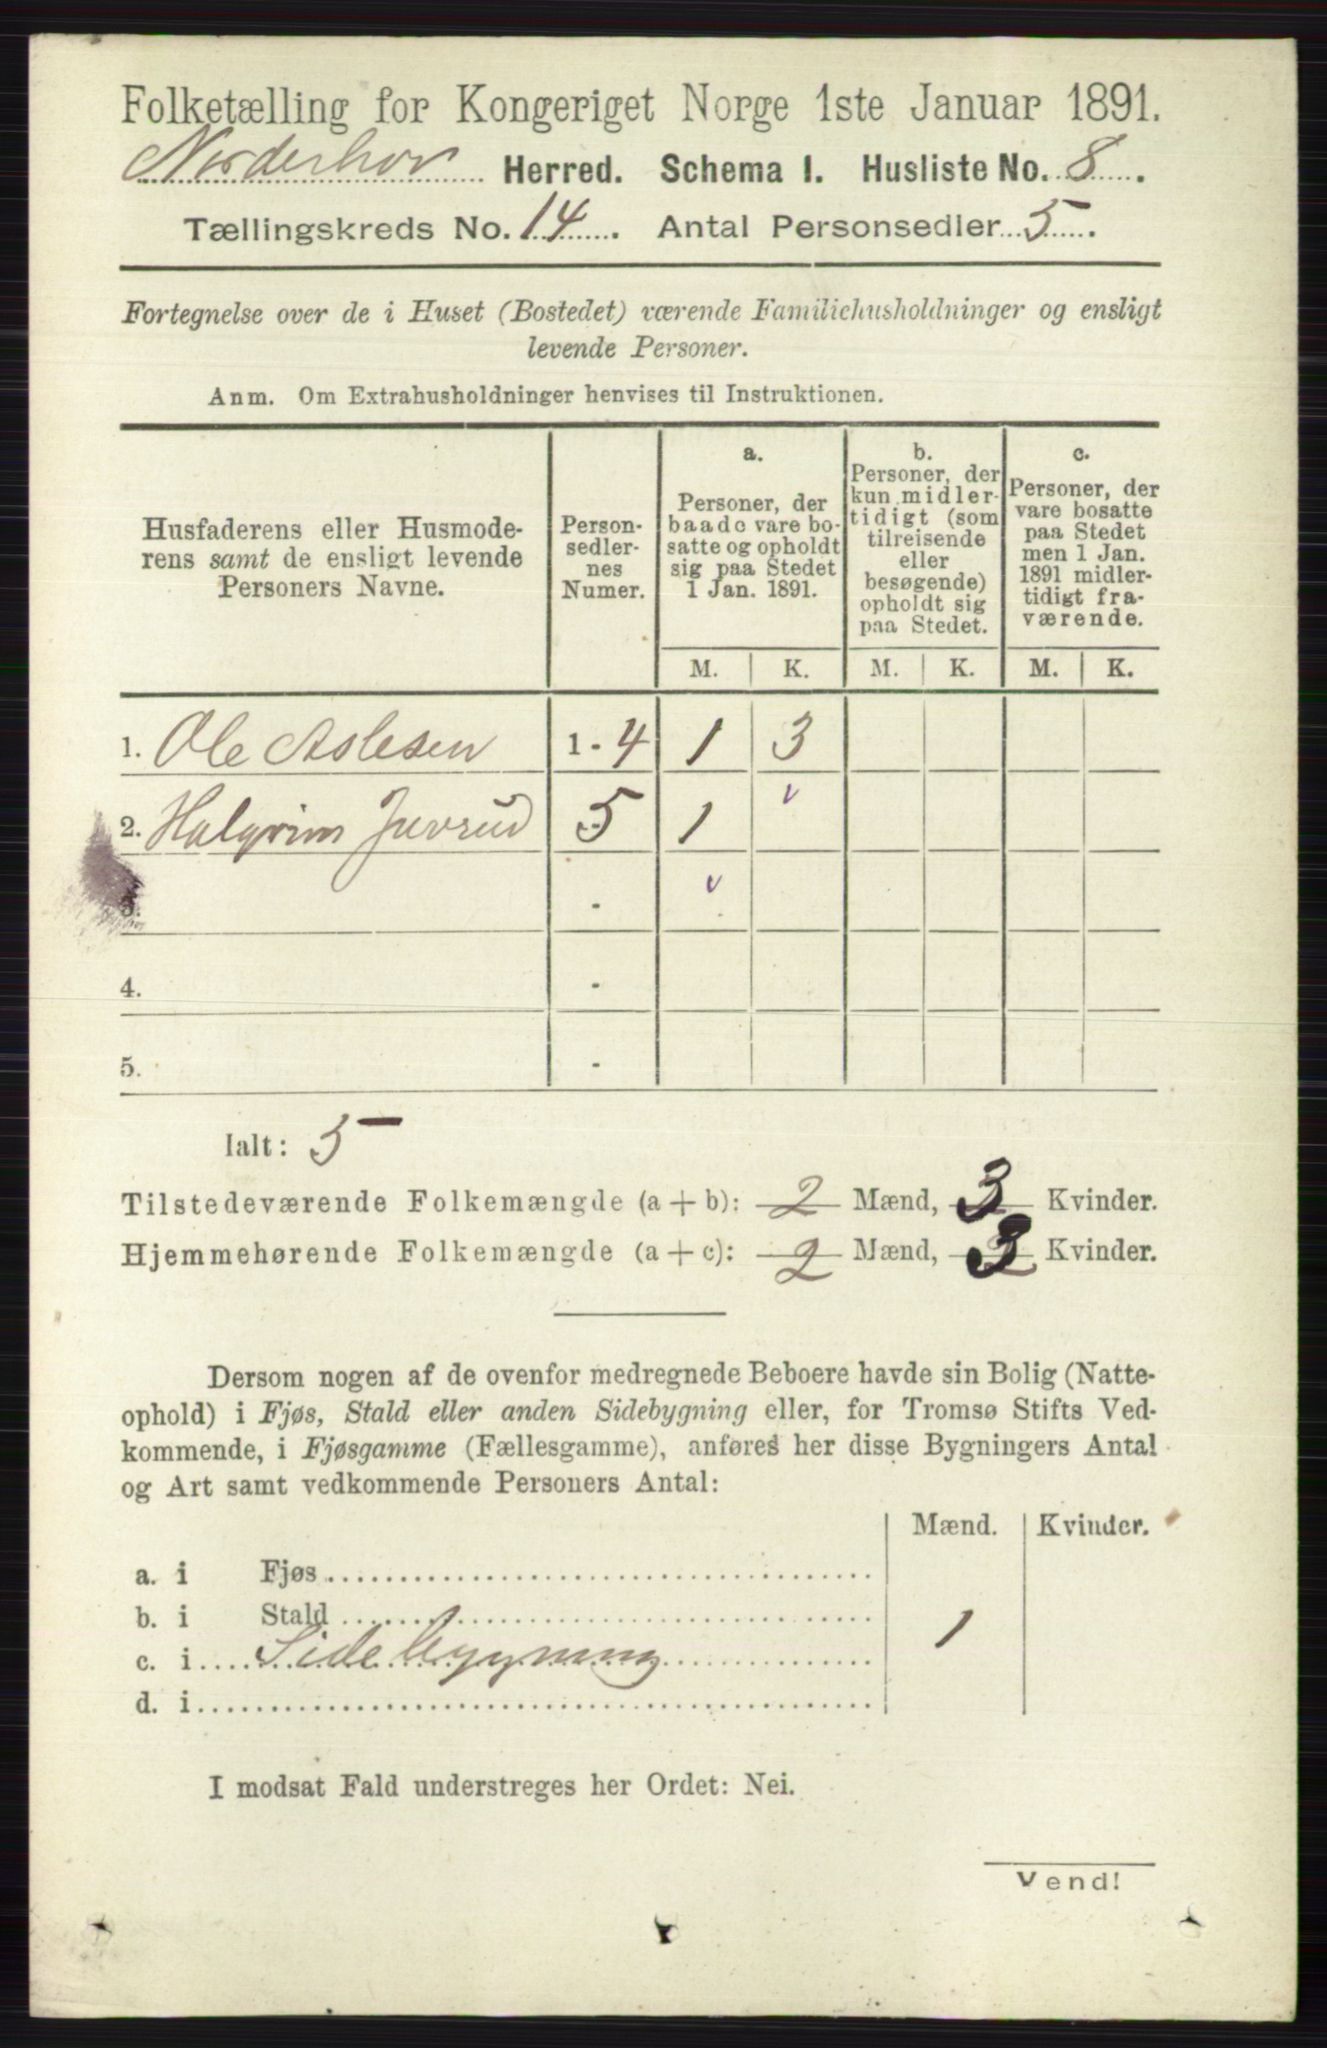 Folketælling for Kongeriget Norge 1ste Januar 1891.
Norderhov Herred. Schema 1. Husliste No. 8.
Tællingskreds No. 14. Antal Personsedler 5.
Fortegnelse over de i Huset (Bostedet) værende Familiehusholdninger og ensligt
levende Personer.
Anm. Om Extrahusholdninger henvises til Instruktionen.
Husfaderens eller Husmode-
rens samt de ensligt levende
Personers Navne.
Person-
sedler-
nes
Numer.
a.
Personer, der
baade vare bo-
satte og opholdt
sig paa Stedet
1 Jan. 1891.
b.
Personer, der
kun midler-
tidigt (som
tilreisende
eller
besøgende)
opholdt sig
paa Stedet.
c.
Personer, der
vare bosatte
paa Stedet
men 1 Jan.
1891 midler-
tidigt fra-
værende.
M. K. M. K. M. K.
1. Ole Aslesen 1 - 4 1 3
2. Halgrim Juvrud 5 1 v
3. - v
4. -
5. -
Ialt: 5
Tilstedeværende Folkemængde (a + b): 2 Mænd, 3 Kvinder.
Hjemmehørende Folkemængde (a + c): 2 Mænd, 3 Kvinder.
Dersom nogen af de ovenfor medregnede Beboere havde sin Bolig (Natte-
ophold) i Fjøs, Stald eller anden Sidebygning eller, for Tromsø Stifts Ved-
kommende, i Fjøsgamme (Fællesgamme), anføres her disse Bygningers Antal
og Art samt vedkommende Personers Antal:
Mænd. Kvinder.
a. i Fjøs
b. i Stald
c. i Sidebygning 1
d. i
I modsat Fald understreges her Ordet: Nei.
Vend!